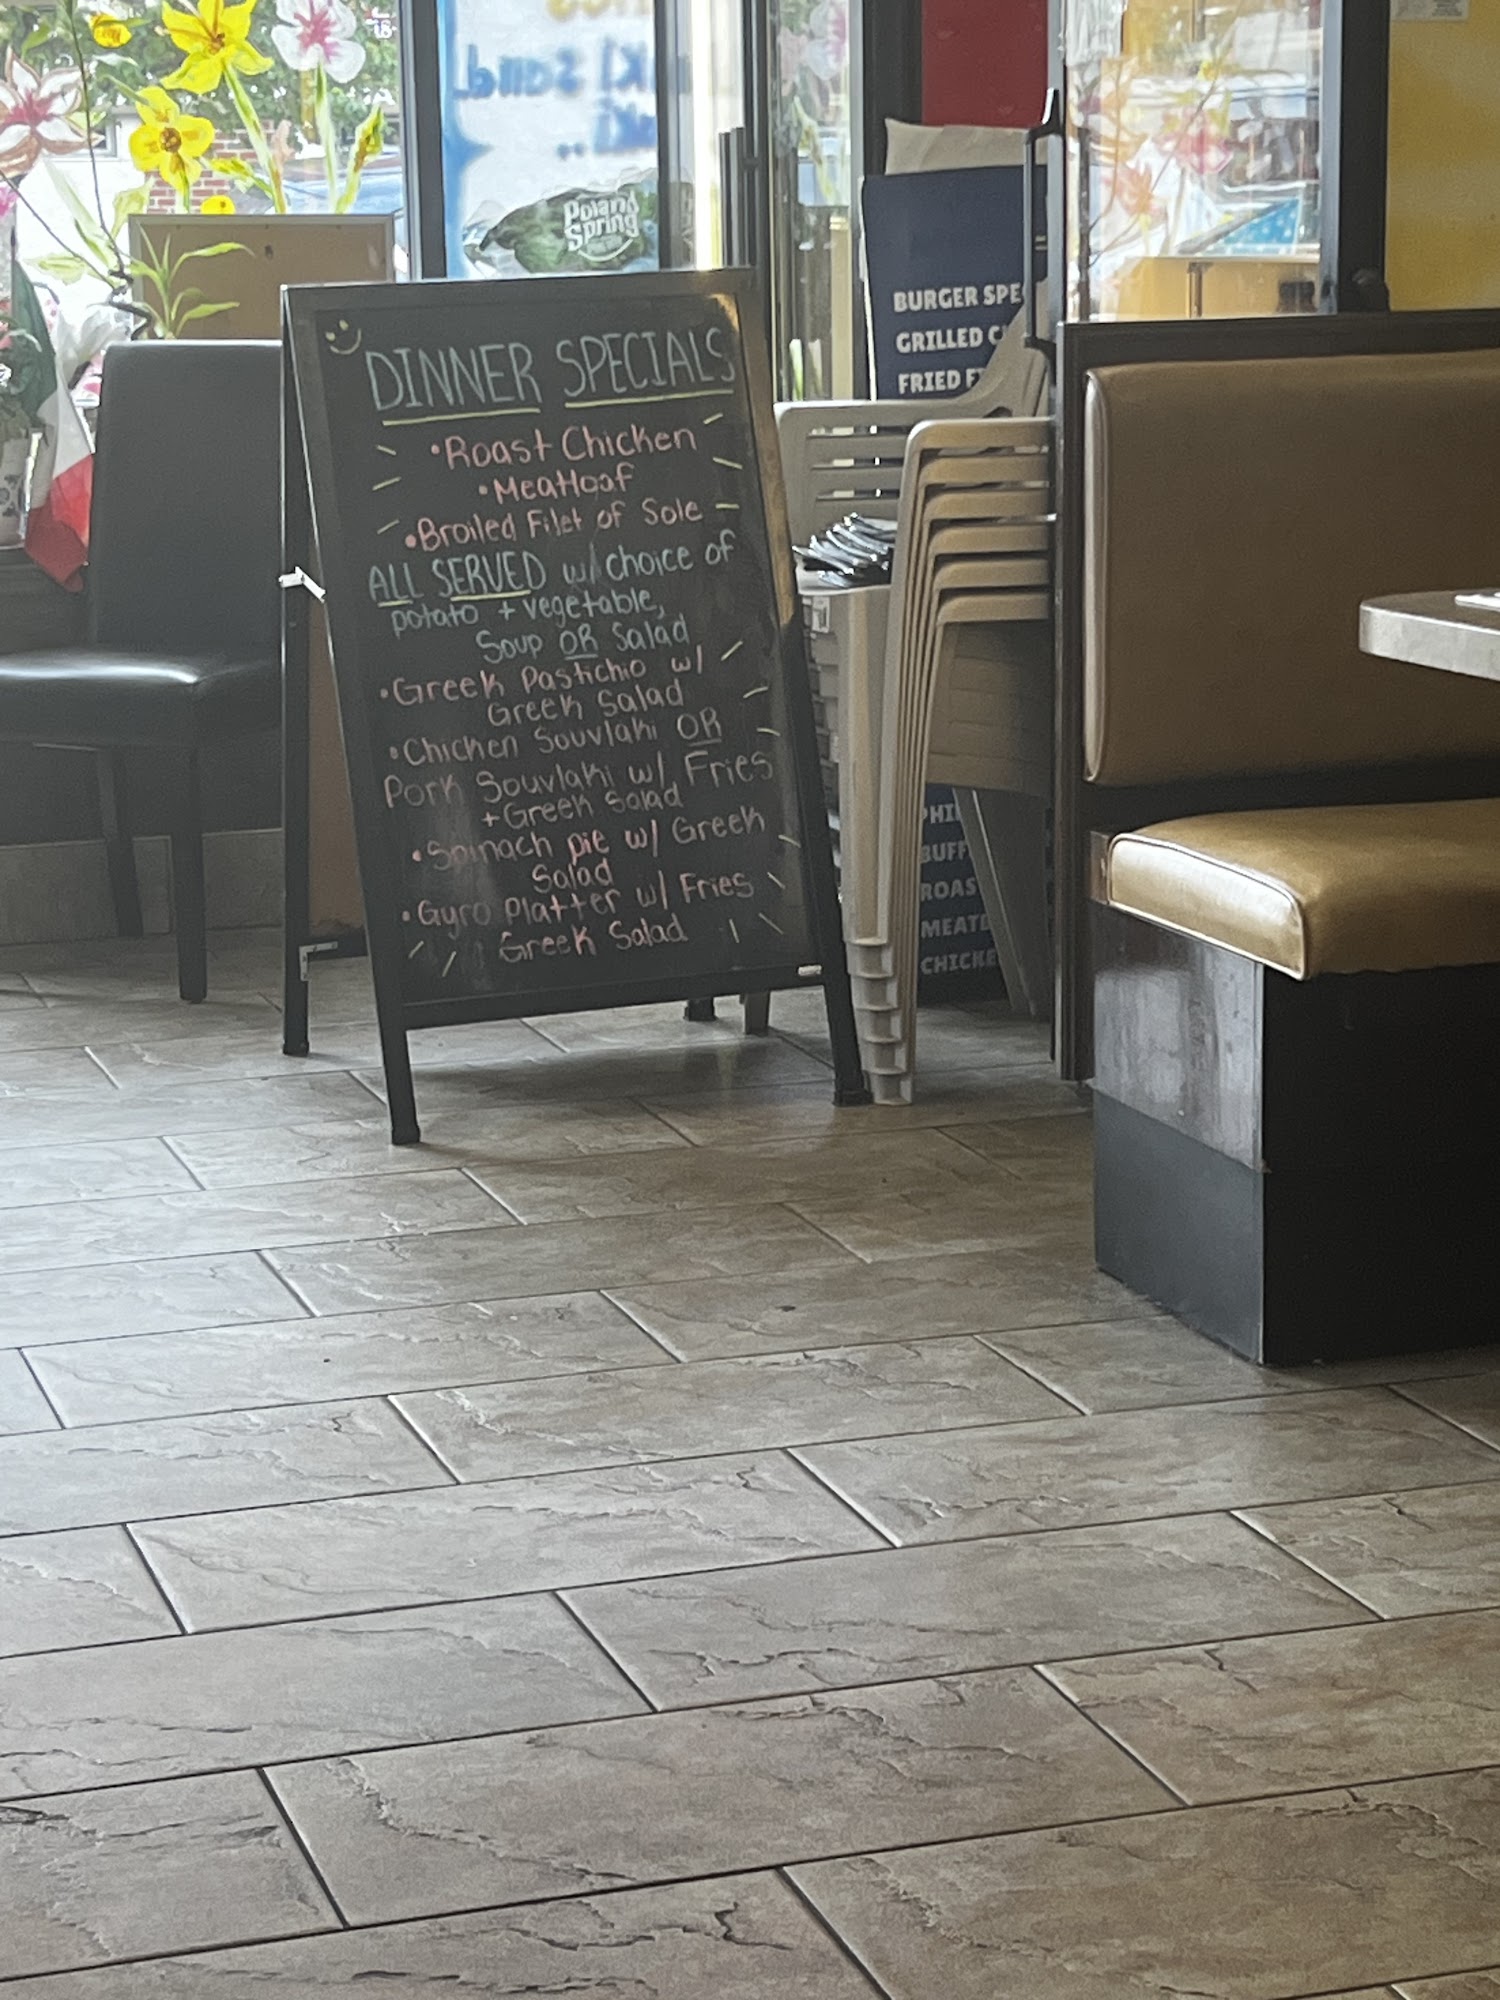 Poland
Spring
BURGER SPE
GRILLED C
FRIED F
DINNER SPECIALS
•Roast Chicken
•Meatloaf
•Broiled Filet of Sole
ALL SERVED w/ choice of
potato + vegetable,
Soup OR Salad
•Greek Pastichio w/
Greek Salad
•Chicken Souvlaki OR
Pork Souvlaki w/ Fries
+Greek Salad
•Spinach pie w/ Greek
Salad
•Gyro Platter w/ Fries
Greek Salad
PHI
BUFF
ROAS
MEATL
CHICKE